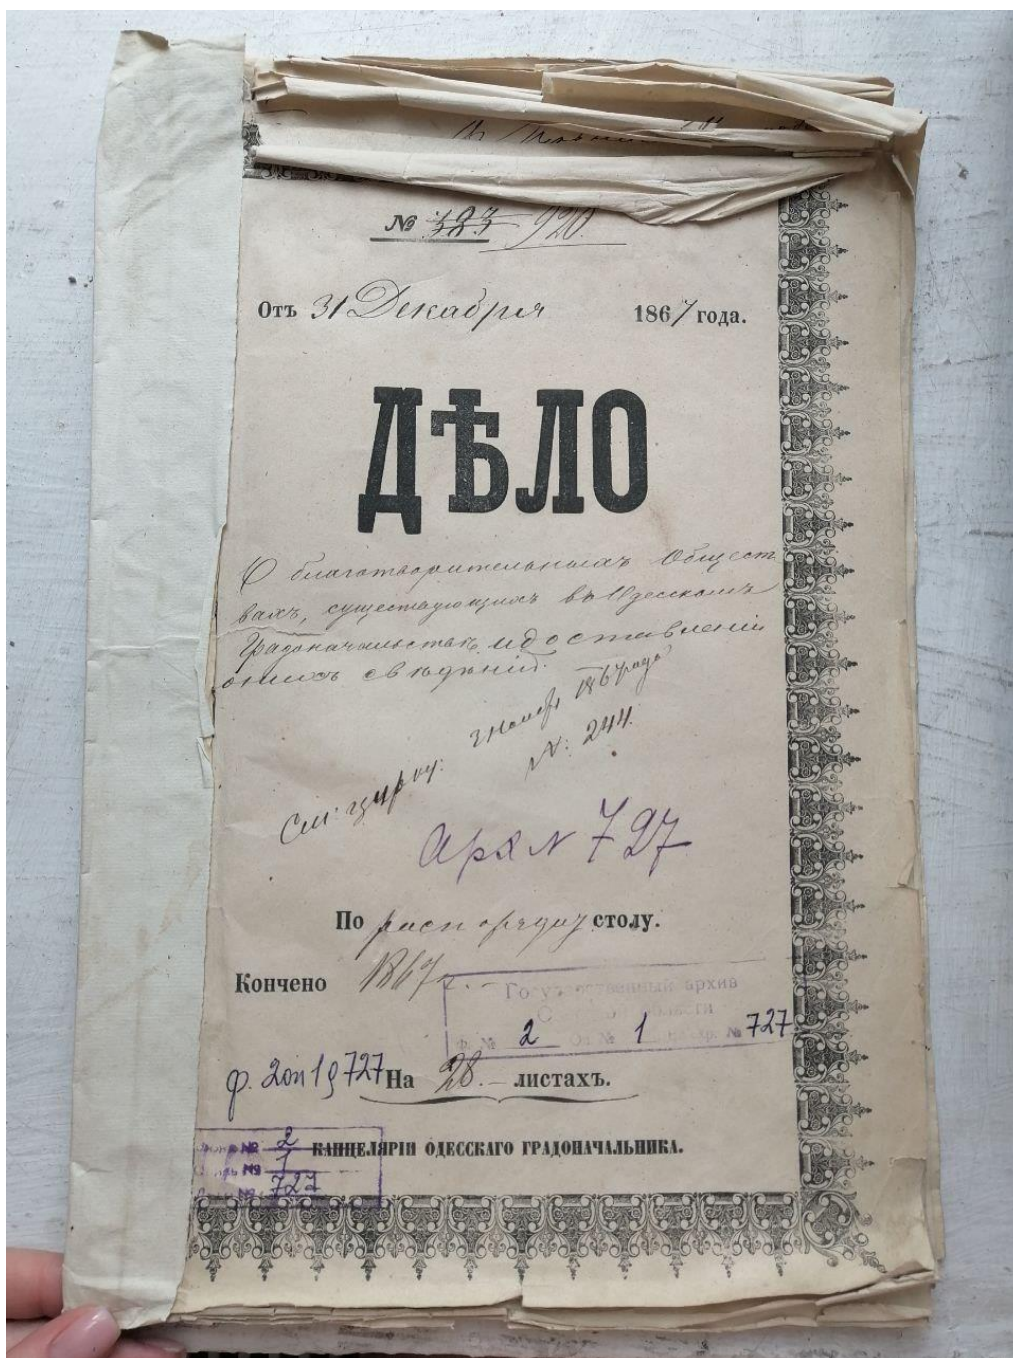 № 383 920.
Отъ 31 Декабря 1867 года.
ДѢЛО
О благотворительныхъ Общест
вахъ, существующихъ въ Одесскомъ
Градоначальствѣ, и доставленіи
о нихъ свѣдѣній.
См. цирк. 1867 года
№ 244.
Арх № 727
По распорядит столу.
Кончено 1867 г.
Государственный архив
области
Ф. № 2 Оп № 1 № 727
ф. 2 оп 1 д 727 На 28. листахъ.
№ 2
КАНЦЕЛЯРІИ ОДЕССКАГО ГРАДОНАЧАЛЬНИКА.
№ 1
№ 727